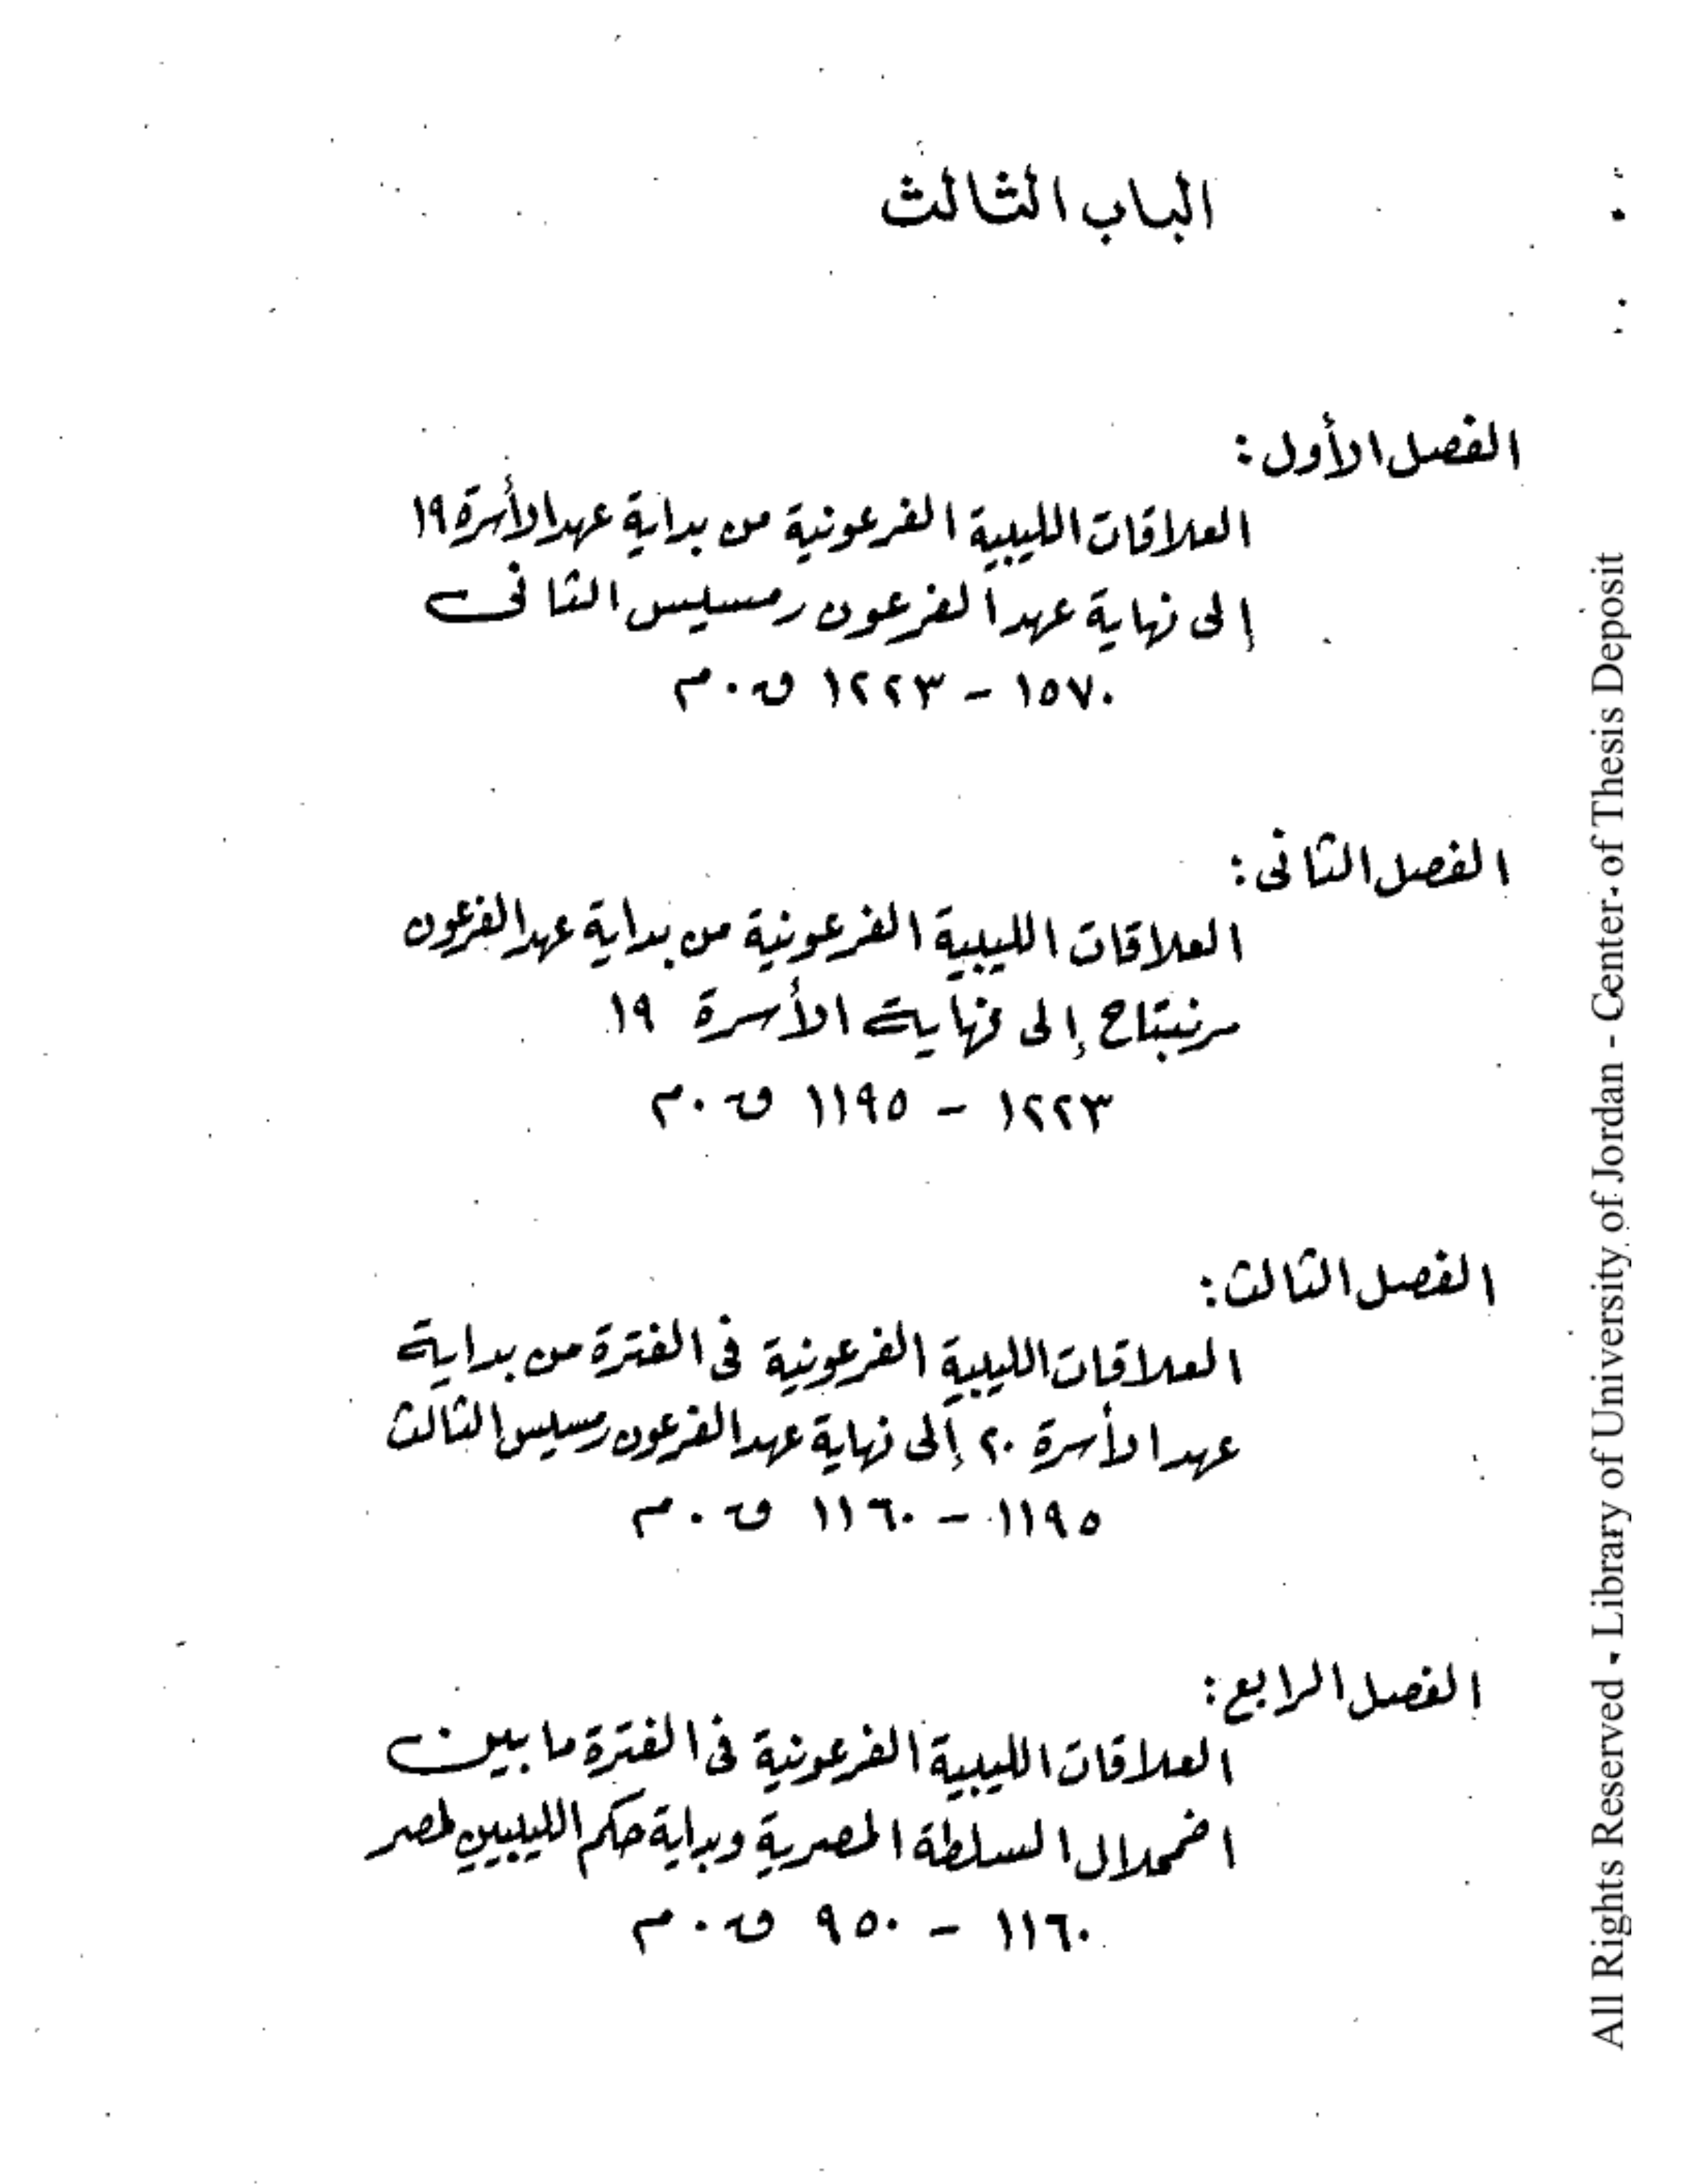 الباب الثالث
الفصل الأول :
العلاقات الليبية الفرعونية من بداية عهد الأسرة ١٩
إلى نهاية عهد الفرعون رمسيس الثانى
١٥٧٠ - ١٢٢٣ ق ٠ م
الفصل الثانى :
العلاقات الليبية الفرعونية من بداية عهد الفرعون
مرنبتاح إلى نهاية الأسرة ١٩
١٢٢٣ - ١١٩٥ ق ٠ م
الفصل الثالث :
العلاقات الليبية الفرعونية فى الفترة من بداية
عهد الأسرة ٢٠ إلى نهاية عهد الفرعون رمسيس الثالث
١١٩٥ - ١١٦٠ ق ٠ م
الفصل الرابع :
العلاقات الليبية الفرعونية فى الفترة ما بين
اضمحلال السلطة المصرية وبداية حكم الليبيين لمصر
١١٦٠ - ٩٥٠ ق ٠ م
All Rights Reserved - Library of University of Jordan - Center of Thesis Deposit